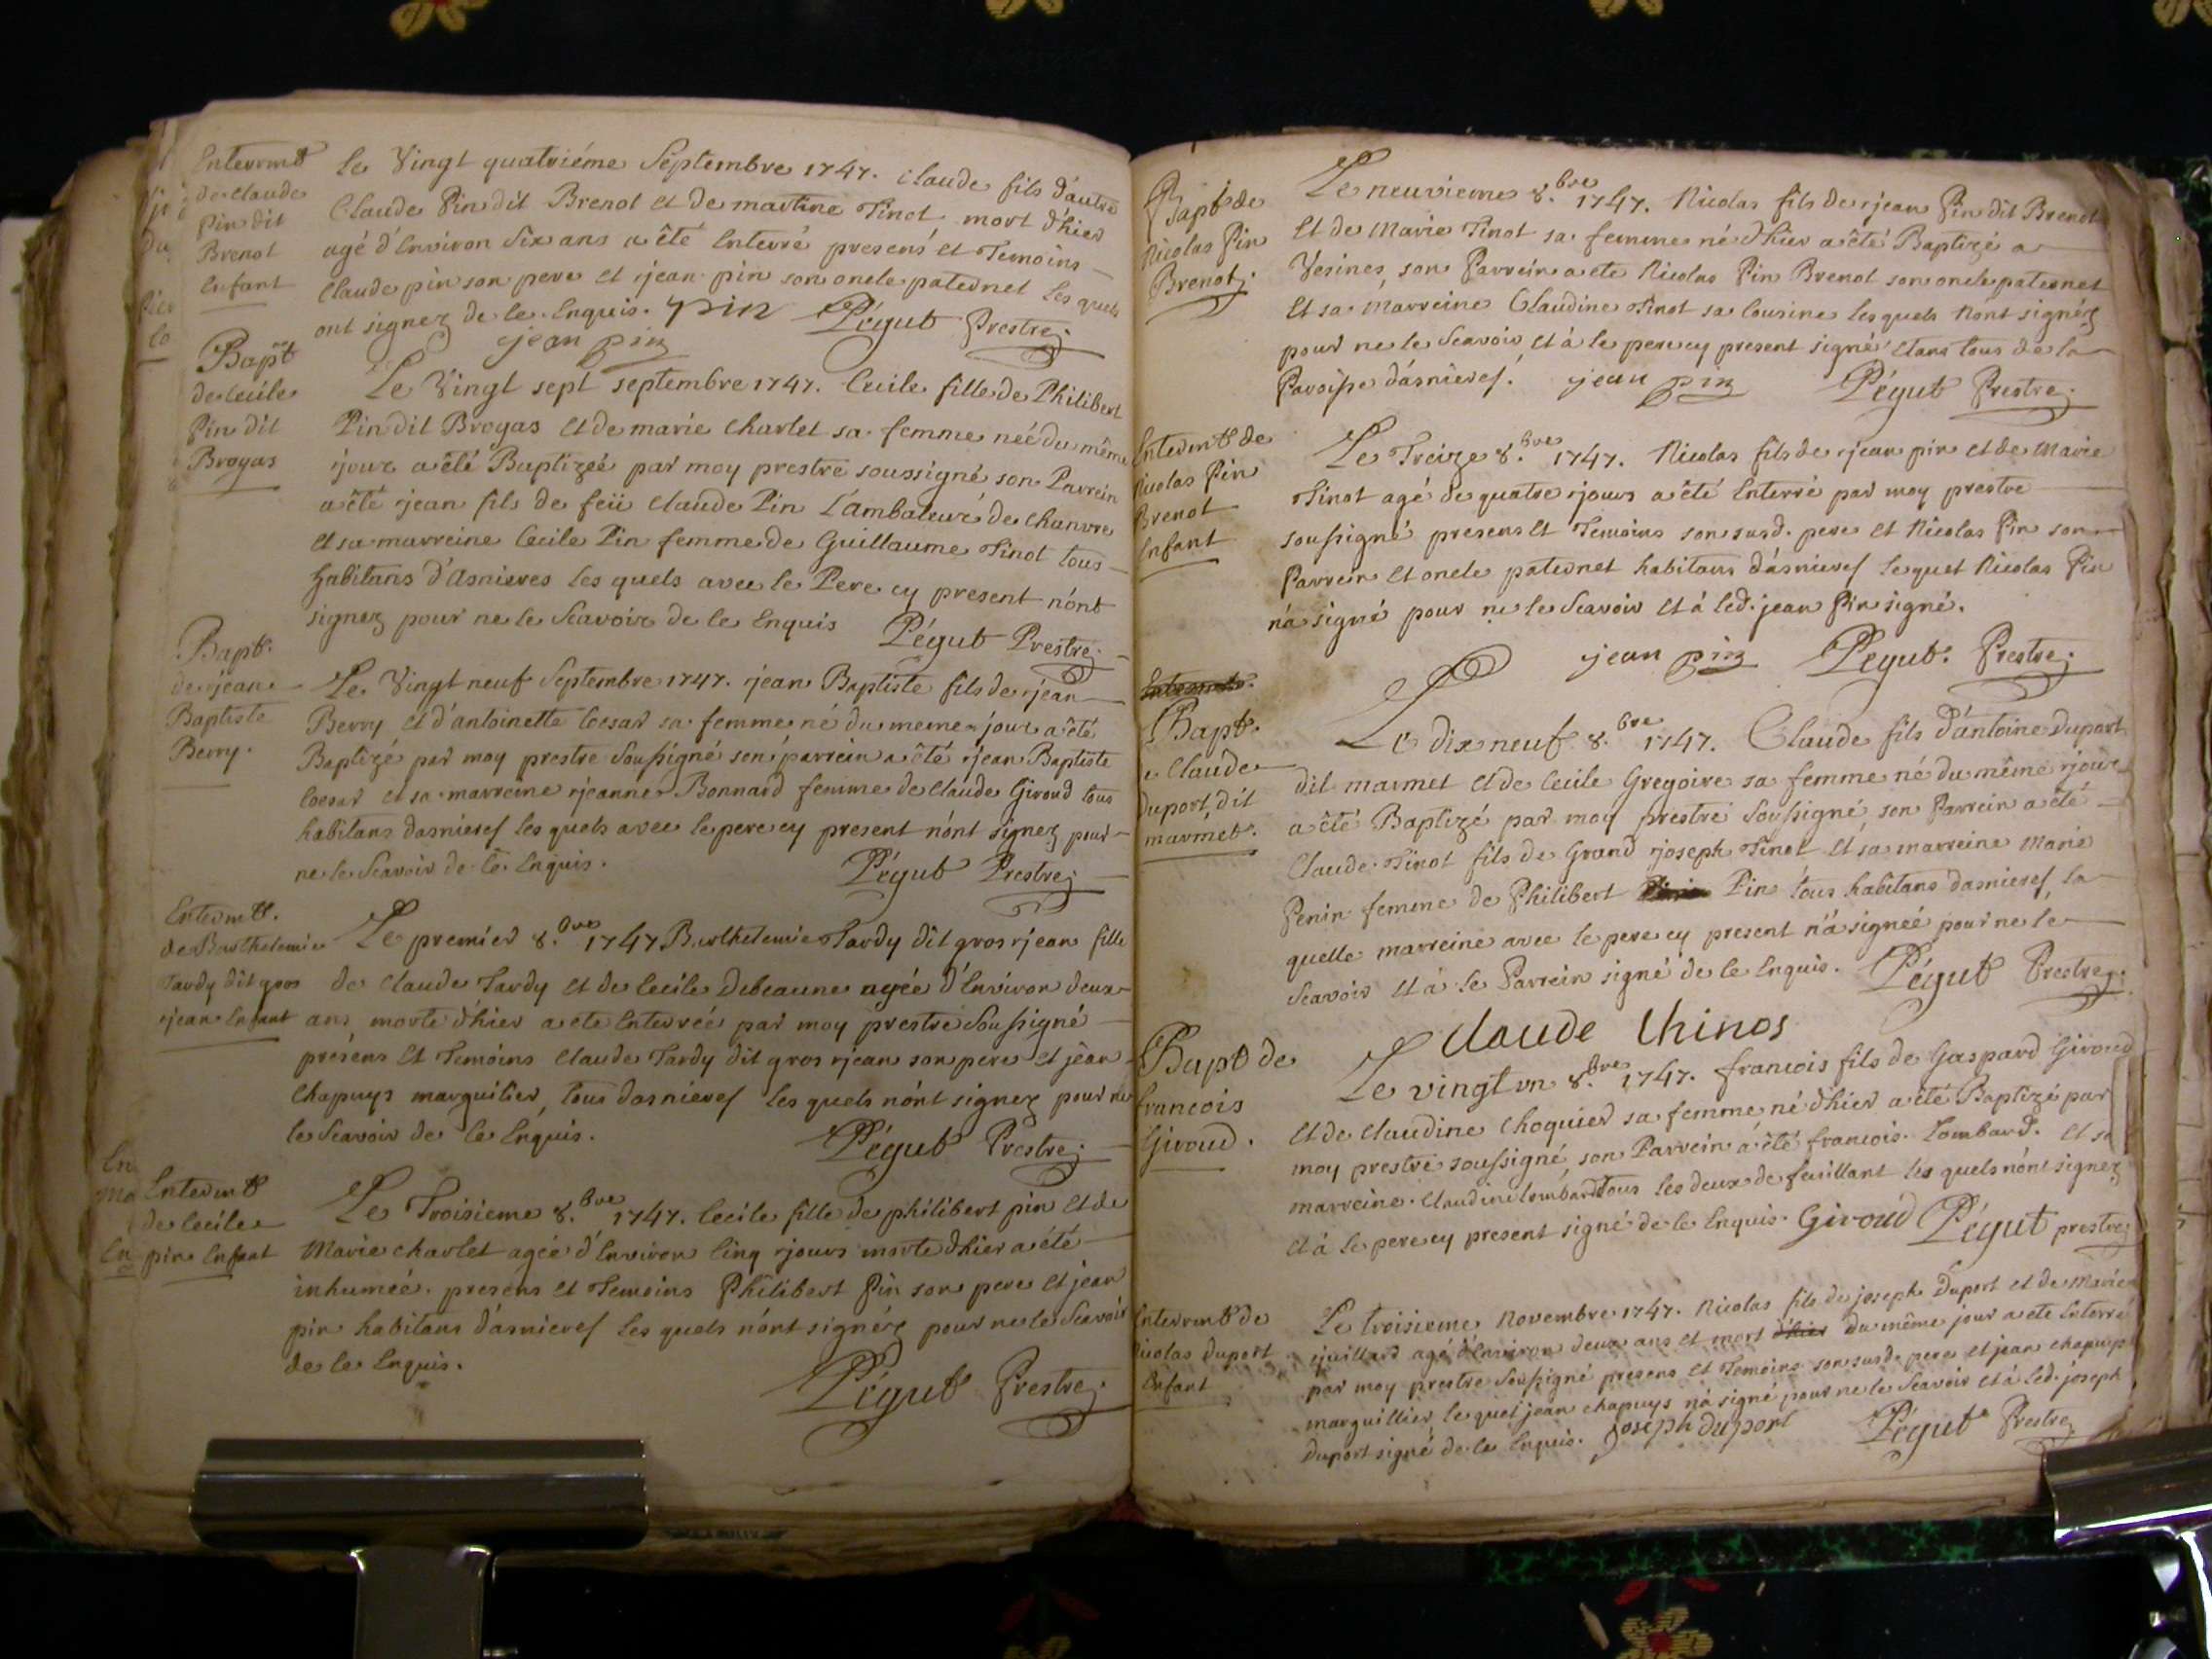 Enterrmt
de Claude
Pin dit
Brenot
Enfant
Le Vingt quatriéme Septembre 1747. Claude fils d'autre
Claude Pin dit Brenot et de martine Tinot mort d'hier
agé d'Environ Six ans a été Enterré presens et Temoins
Claude pin son pere et jean pin son oncle paternel les quels
ont signez de ce Enquis. Pin Pégut Prestre.
jean pin
Bapt
de Cecile
Pin dit
Brogas
Le Vingt sept septembre 1747. Cecile fille de Philibert
Pin dit Brogas et de marie Charlet sa femme neé du même
jour a été Baptizeé par moy prestre soussigné son Parrein
a été jean fils de feü Claude Pin L'ambateur de chanvre
et sa marreine Cecile Pin femme de Guillaume Tinot tous
habitans d'Asnieres les quels avec le Pere cy present n'ont
signez pour ne le Scavoir de ce Enquis Pégut Prestre.
Bapt.
de jean
Baptiste
Berry.
Le Vingt neuf Septembre 1747. jean Baptiste fils de jean
Berry et d'antoinette Cesar sa femme né du meme jour a été
Baptizé par moy prestre Soussigné son parrein a été jean Baptiste
Cesar et sa marreine jeanne Bonnard femme de Claude Giroud tous
habitans dasnieres les quels avec le pere cy present n'ont signez pour
ne le Scavoir de ce Enquis. Pégut Prestre.
Enterrmt.
de Barthelemie
Tardy dit gros
jean Enfant
Le premier 8.bre 1747 Barthelemie Tardy dit gros jean fille
de Claude Tardy et de Cecile Debeaune agée d'Environ deux
ans morte d'hier a ete Enterreé par moy prestre Soussigné
présens et Temoins Claude Tardy dit gros jean son pere et jean
Chapuys marguilier, tous dasnieres les quels n'ont signez pour ne
le Scavoir de ce Enquis. Pégut Prestre.
Enterrmt
de Cecile
pin Enfant
Le Troisieme 8.bre 1747. Cecile fille de philibert pin et de
Marie charlet agée d'Environ Cinq jours morte d'hier a été
inhumeé. presens et Temoins Philibert Pin son pere et jean
pin habitans d'asnieres les quels n'ont signéz pour ne le Scavoir
de ce Enquis.
Pégut Prestre.
Bapt de
Nicolas Pin
Brenot.
Le neuvieme 8.bre 1747. Nicolas fils de jean Pin dit Brenot
et de Marie Tinot sa femme né d'hier a été Baptizé a
Vesines, son Parrein a ete Nicolas Pin Brenot son oncle paternel
et sa Marreine Claudine Tinot sa Cousine les quels n'ont signéz
pour ne le Scavoir, et à le pere cy present signé étans tous de la
Paroisse d'asnieres. jean pin Pégut Prestre.
Enterrmt de
Nicolas Pin
Brenot
Enfant
Le Treize 8.bre 1747. Nicolas fils de jean pin et de Marie
Tinot agé de quatre jours a été Enterré par moy prestre
soussigné presens et Temoins son susd. pere et Nicolas Pin son
Parrein et oncle paternel habitans d'asnieres lequel Nicolas Pin
n'a signé pour ne le Scavoir et à led. jean Pin signé.
jean pin Pegut. Prestre.
Bapt.
de Claude
Duport dit
marmet.
Le dix neuf 8.bre 1747. Claude fils d'antoine Duport
dit marmet et de Cecile Gregoire sa femme né du même jour
a été Baptizé par moy prestre Soussigné, son Parrein a été
Claude Tinot fils de Grand joseph Tinot et sa marreine Marie
Penin femme de Philibert Pin tous habitans dasnieres, la
quelle marreine avec le pere cy present n'a signeé pour ne le
Scavoir et à le Parrein signé de ce Enquis. Pégut Prestre.
Claude thinos
Bapt de
francois
Giroud.
Le vingt un 8.bre 1747. francois fils de Gaspard Giroud
et de Claudine Choquier sa femme né d'hier a été Baptizé par
moy prestre soussigné, son Parrein a été francois Lombard. et sa
marreine Claudine Lombard Tous les deux de feuillant les quels n'ont signez
et à le pere cy present signé de ce Enquis. Giroud Pégut prestre
Enterrmt de
Nicolas Duport
Enfant
Le troisieme Novembre 1747. Nicolas fils de joseph Duport et de Marie
juillard agé d'Environ deux ans et mort d'hier du même jour a ete Enterré
par moy prestre Soussigné presens et Temoins son susd. pere et jean chapuys
marguillier, lequel jean chapuys n'a signé pour ne le Scavoir et à led. joseph
Duport signé de ce Enquis. Joseph duport Pégut Prestre